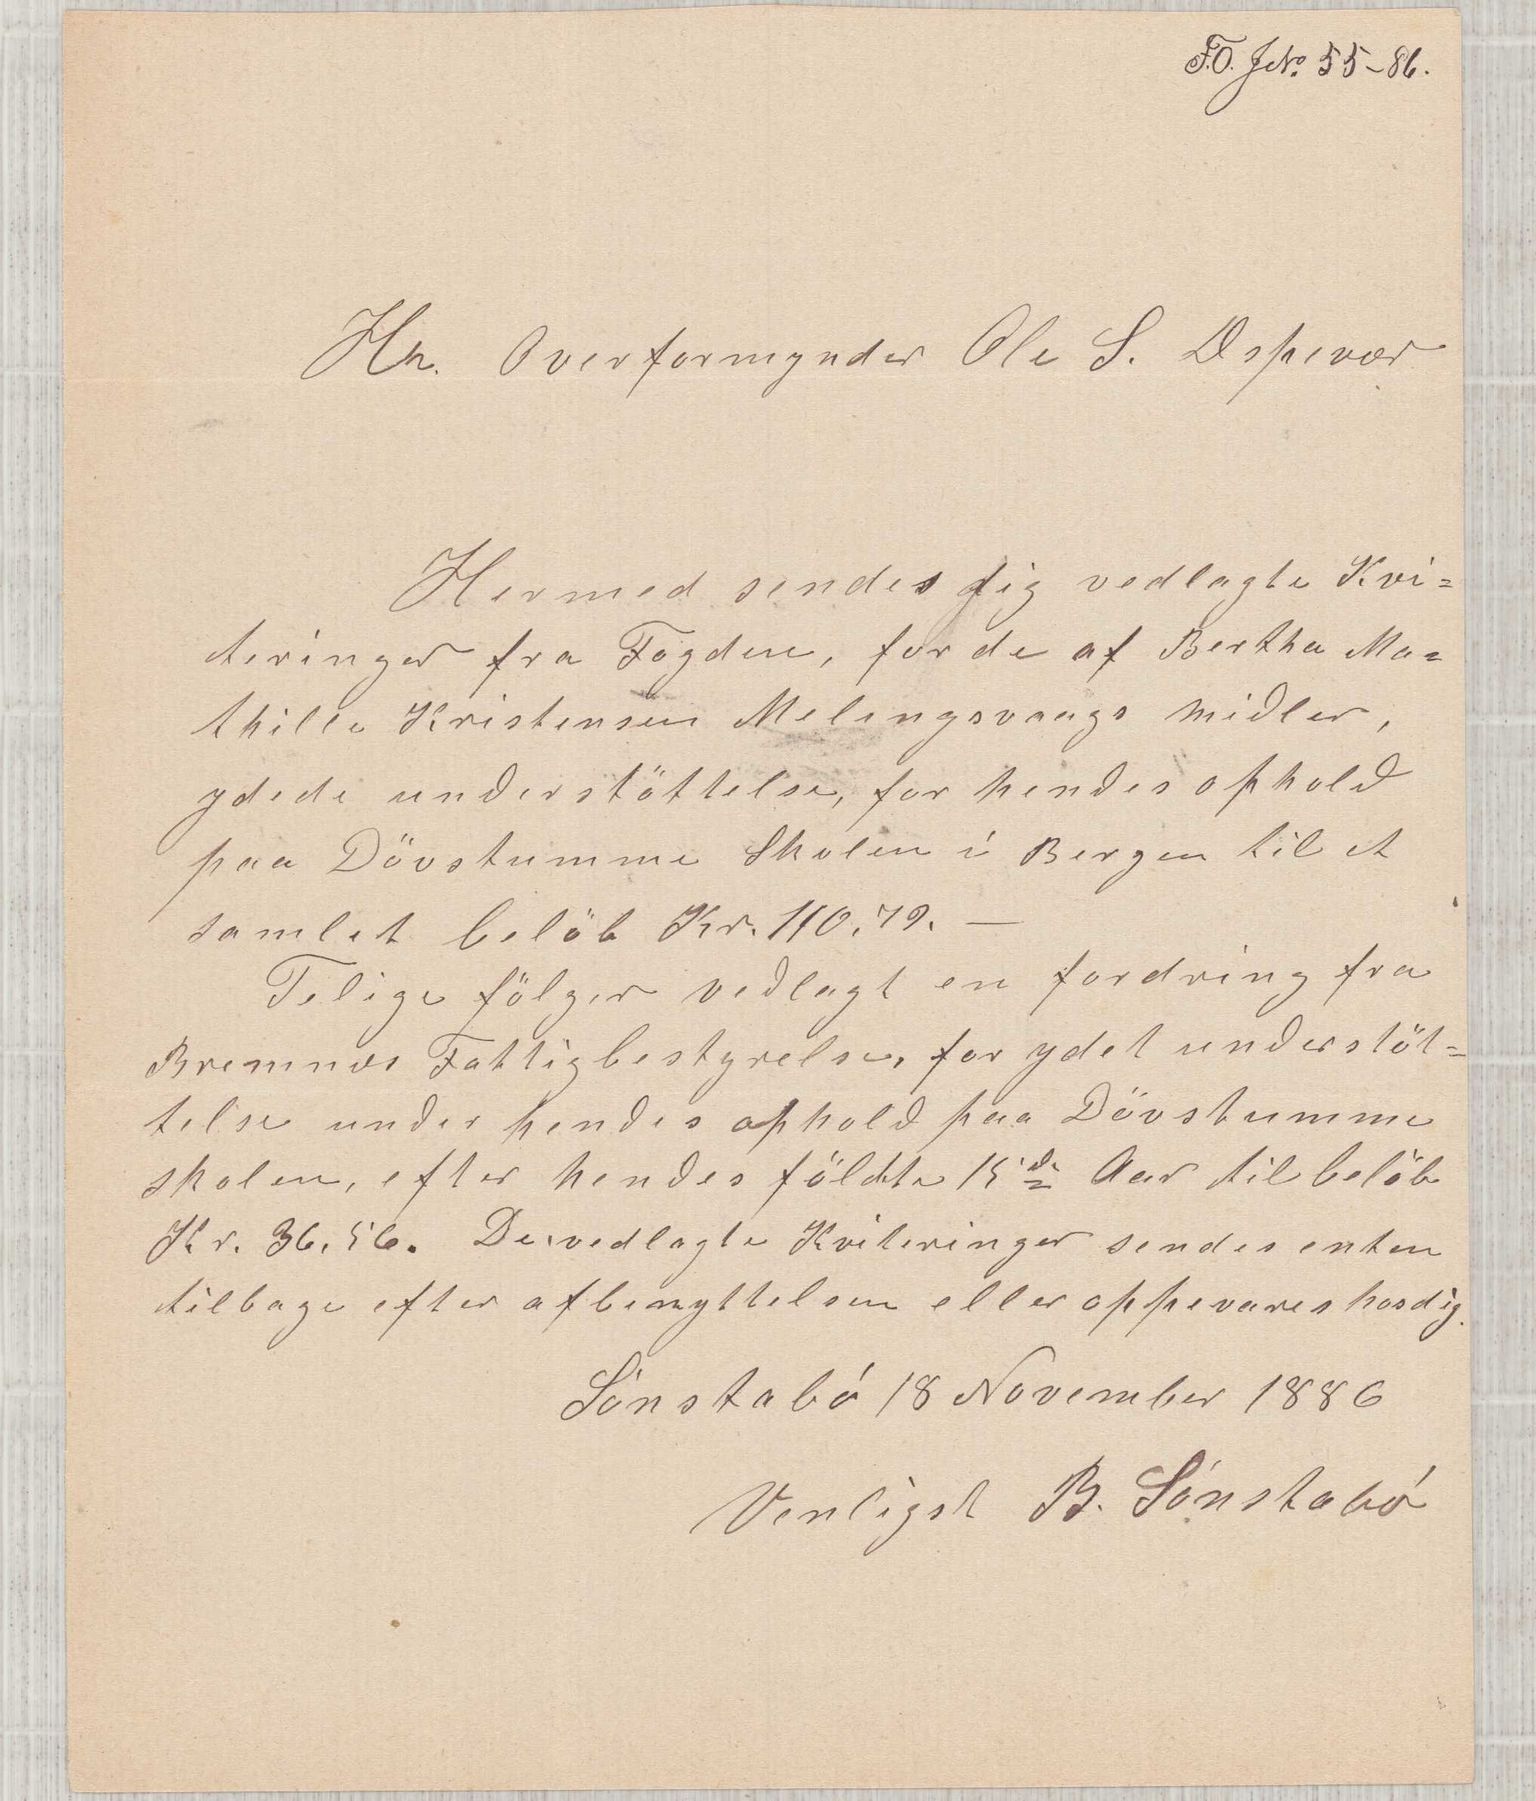 F.O. J№. 55-86.
Hr. Overformynder Ole S. Espevær
Hermed sendes dig vedlagte Kvi=
teringer fra Fogden, for de af Bertha Ma=
thille Kristensen Melingsvaags midler,
ydede understöttelse, for hendes ophold
paa Dövstumme Skolen i Bergen til et
samlet belöb Kr. 110,79. —
Telige fölger vedlagt en fordring fra
Bremnæs Fattigbestyrelse, for ydet understöt=
telse under hendes ophold paa Dövstumme
skolen, efter hendes földte 15de Aar til belöb
Kr. 36,56. De vedlagte Kviteringer sendes enten
tilbage efter afbenyttelsen eller oppevares hos dig.
Sónstabó 18 November 1886
Venligst B. Sónstabó